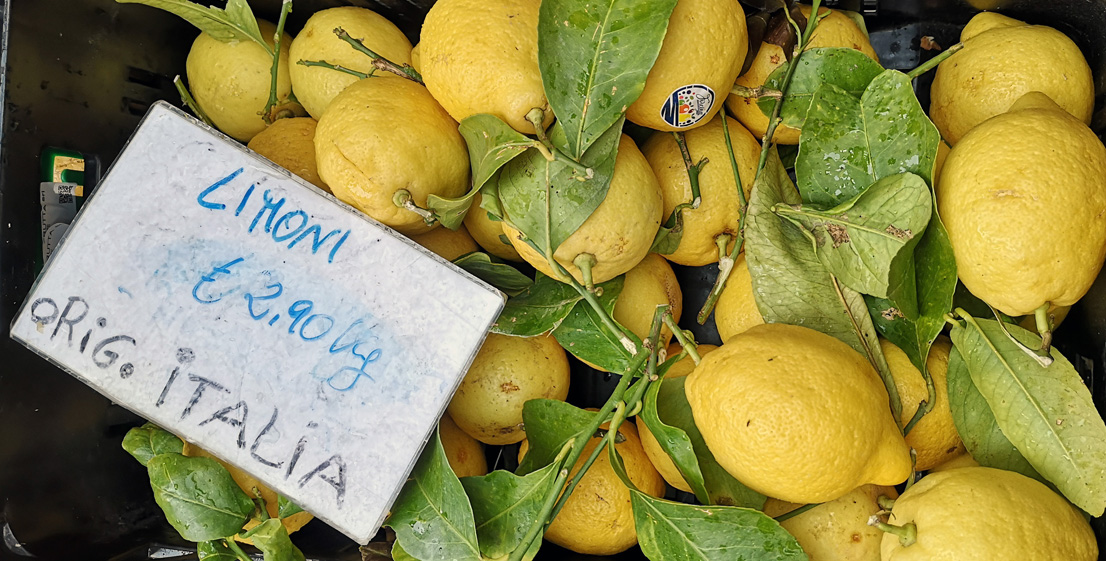 LIMONI
€ 2,90 Kg
ORIG. ITALIA